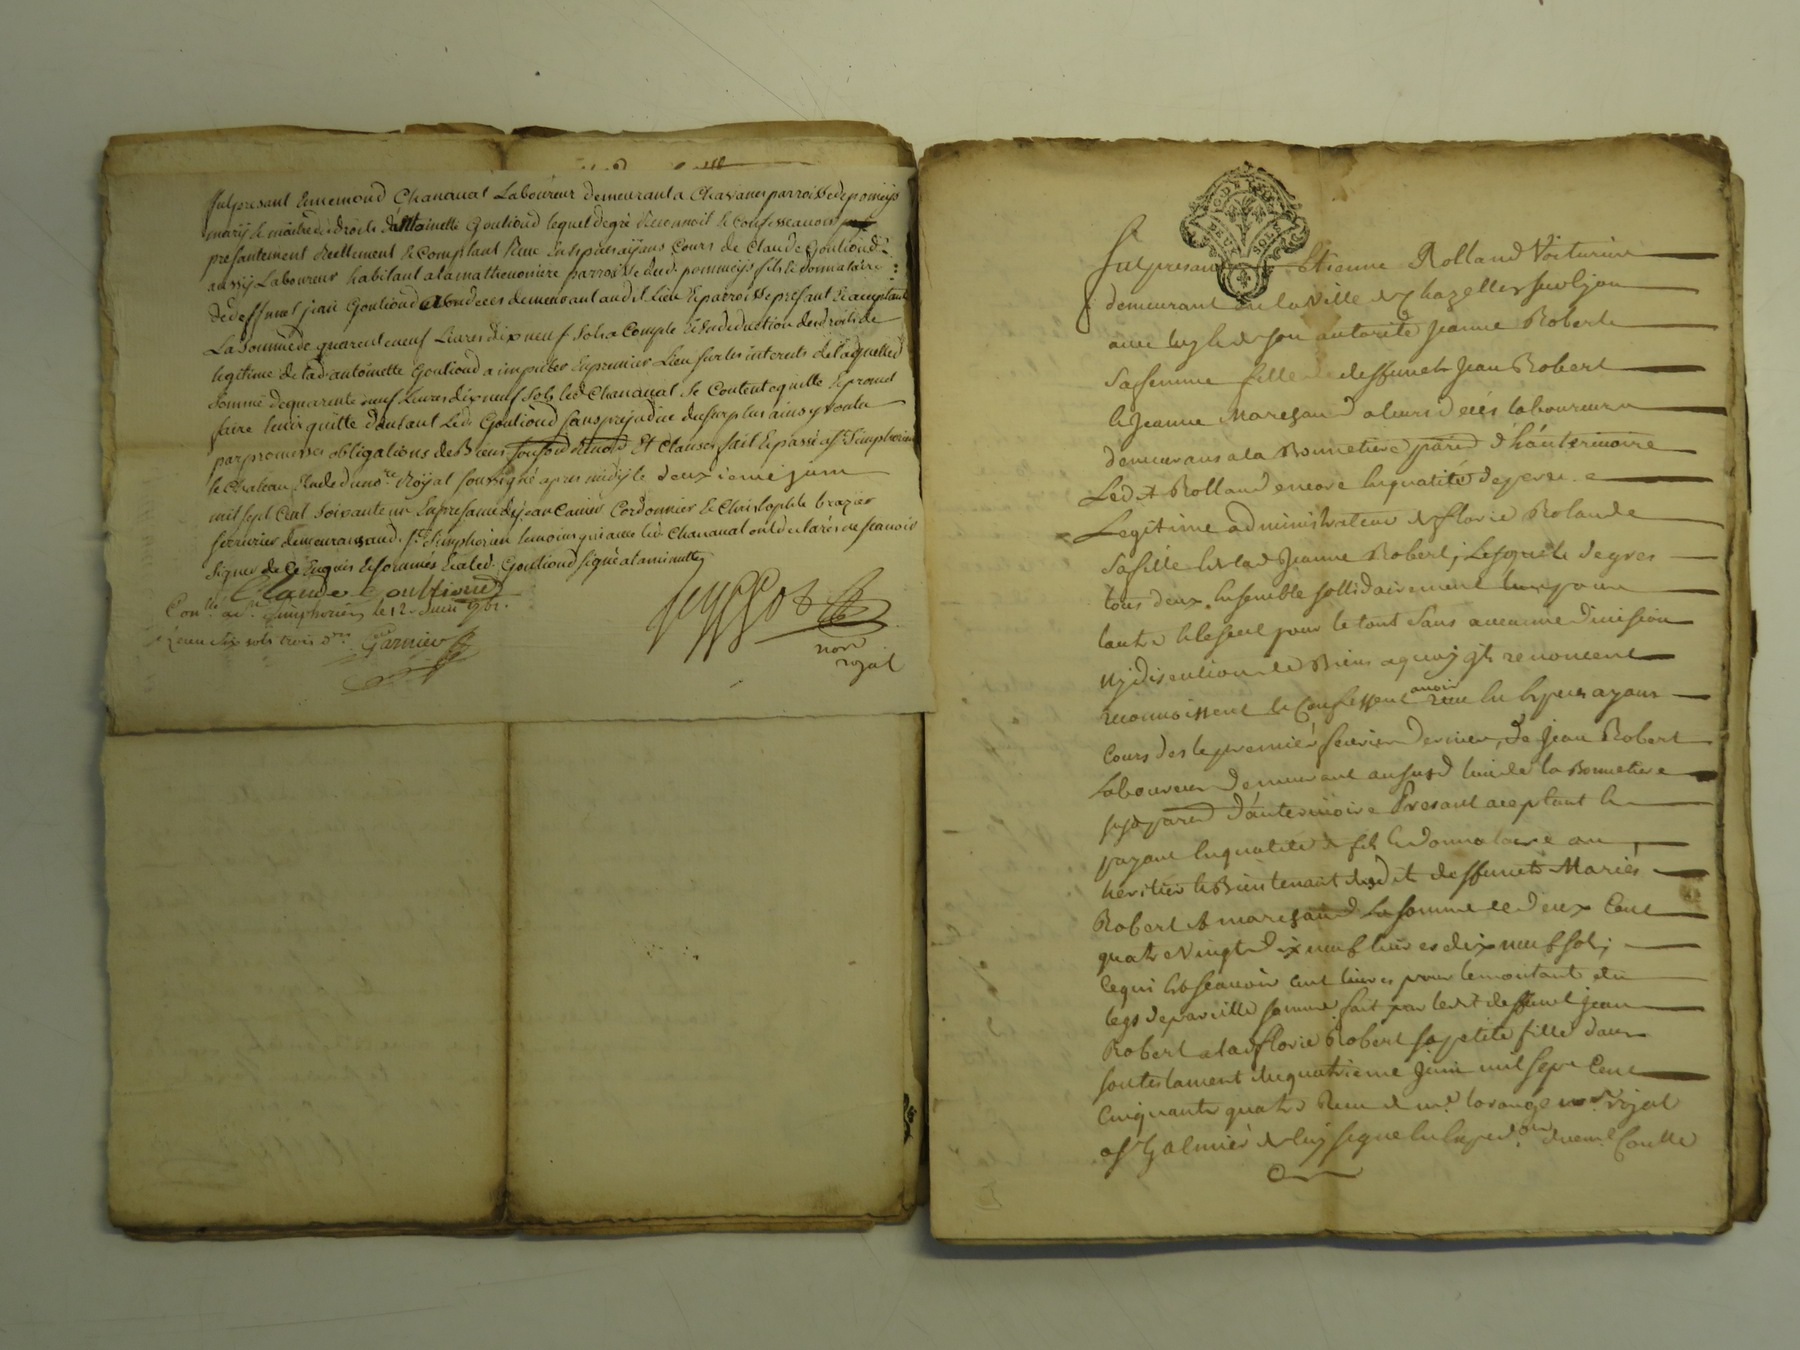 Fut present Ennemond Chanavat Laboureur demeurant a Chavanes parroisse de pomeys
mary Et maitre des droits d'Antoinette Goutioud lequel de gré Reconnoit Et Confesse avoir
presantement Reellement Et Comptant Reçue En Espèces ayans Cours de Claude Goutioud
aussy Laboureur habitant a la mathevoniere parroisse dud pommeys fils Et donnataire
de deffunt jean Goutioud demeurant audit Lieu Et parroisse presant Et aceptant
La Somme de quarente neuf Livres dix neuf Sols a Compte Et En deduction des droits de
legitime de lad. antoinette Goutioud a imputer En premier Lieu sur les interets de laquelle
Somme de quarente neuf Livres dix neuf Sols led Chanavat Se Contente quitte Et promet
faire tenir quitte d'autant Led. Goutioud Sans prejudice du Surplus ainsy voulu
par promesses obligations de Biens Et Clauses fait Et passé a St Simphorien
le Chateau Etude du nore Royal Soussigné apres midy le deuxieme juin
mil Sept Cent Soixante un En presance de jean Cordonnier Et Christophle brazier
Serrurier demeurans aud. St Simphorien temoins qui avec led. Chanavat ont declarés ne Scavoir
Signer de Ce Enquis Et Sommés Et a led. Goutioud Signé a la minutte
Claude Goutioud
Conllé a St Simphorien le 12 Juin 1761.
Reçu six sols trois drs Garnier
nore
royal
GEN
SOLS
Fut presant Etienne Rolland Voiturier
demeurant En la Ville de Chazelles sur Lyon
avec luy Et de son autorité Jeanne Robert
Sa femme fille de deffunct Jean Robert
Et Jeanne Marczaud a leurs decés laboureur
demeurans a la Bonnetiere parr d'hauterivoire
Ledit Rolland encore En qualité de pere e
Legitime administrateur de florie Rolande
Sa fille Et de lad Jeanne Robert, Lesquels de gres
tous deux Ensemble sollidairement l'un pour
l'autre Et le seul pour le tout Sans aucune Division
ny discution de Biens a quoy ils renoncent
reconnoissent Et Confessent avoir reçu En Especes ayans
Cours des le premier fevrier dernier, de Jean Robert
Laboureur demeurant au susd lieu de la Bonnetiere
susd parr d'auterivoire Presant aceptant Et
payant En qualité de fils Et donnataire ou
heritier Et Bientenant desdit deffuncts Mariés
Robert Et marczaud La somme de deux Cent
quatre Vingt dix neuf livres dix neuf sols,
Ce qui Est sçavoir cent livres pour le montant du
legs de pareille somme fait par ledit deffunct jean
Robert a lad florie Robert sa petite fille dans
son testament du quatrieme Juin mil sept Cent
Cinquante quatre Reçu de me lorange nore royal
a St Galmier de luy signé En Expedon duem Conllé